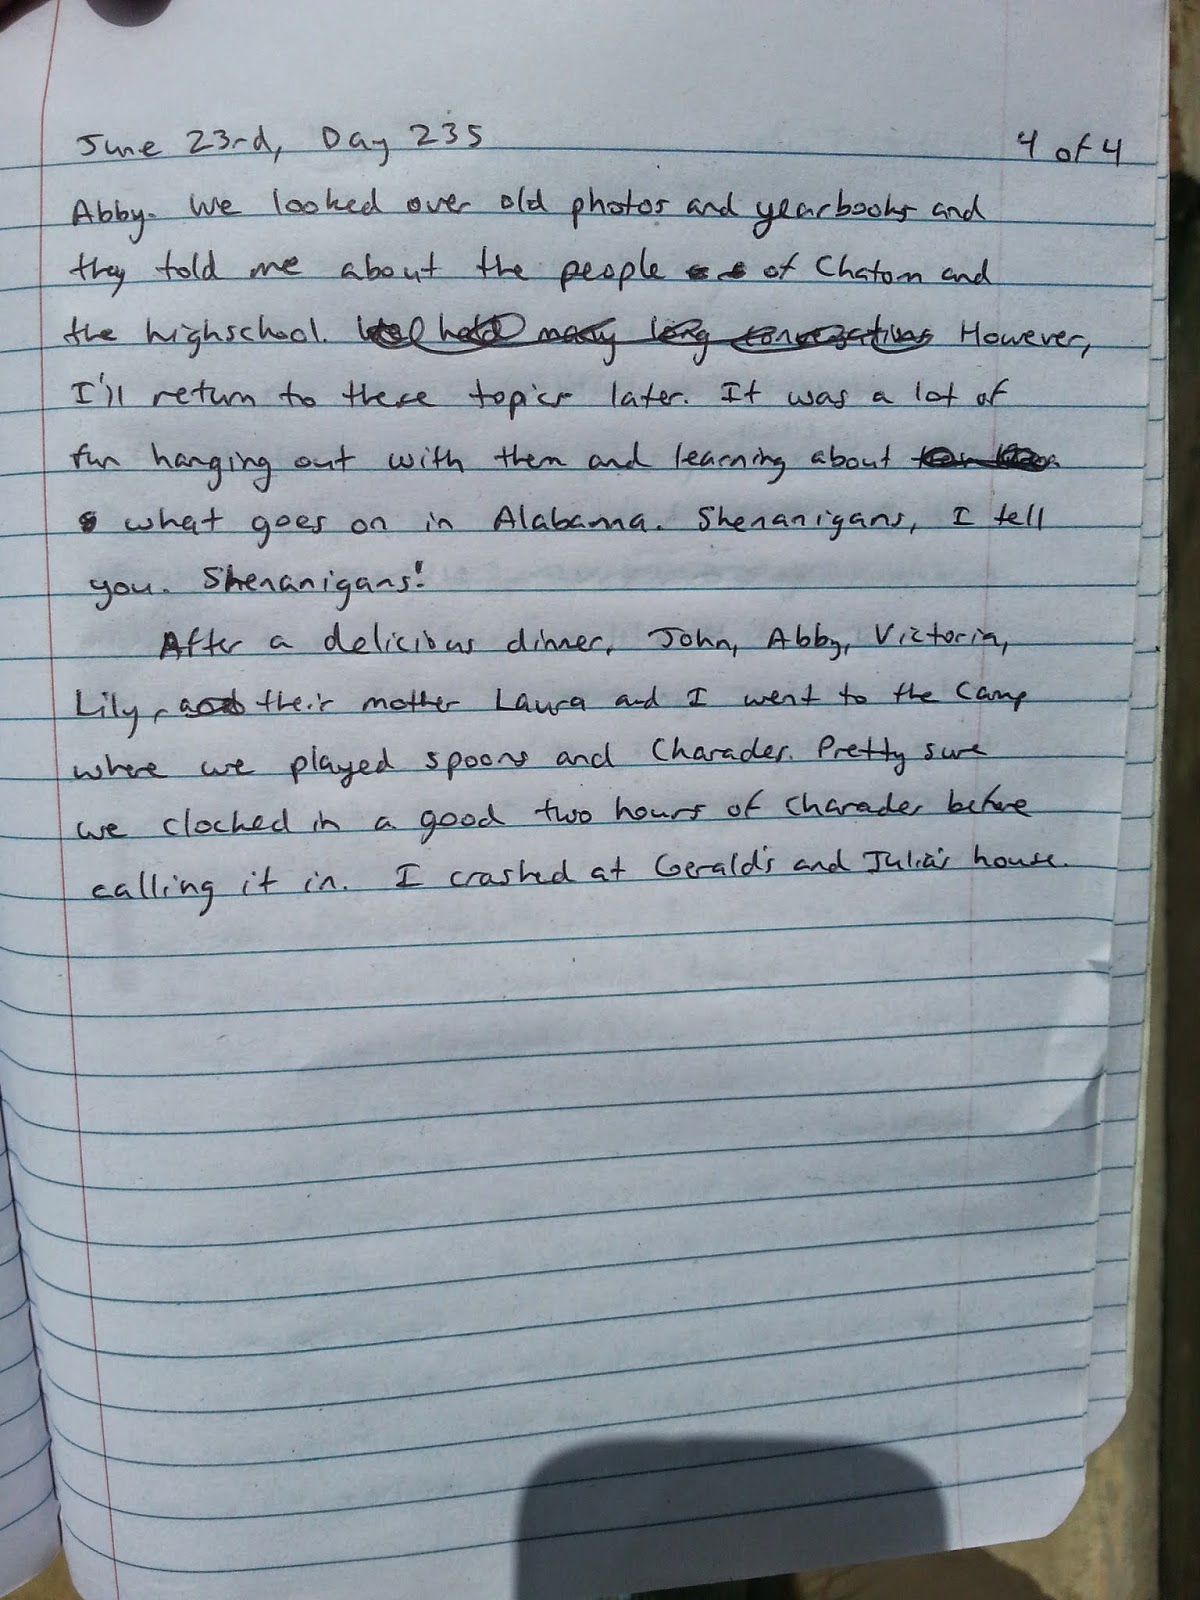 June 23rd, Day 235
4 of 4
Abby. We looked over old photos and yearbooks and
they told me about the people of Chatom and
the highschool. However,
I'll return to these topics later. It was a lot of
fun hanging out with them and learning about
what goes on in Alabama. Shenanigans, I tell
you. Shenanigans!
After a delicious dinner, John, Abby, Victoria,
Lily, their mother Laura and I went to the Camp
where we played spoons and Charades. Pretty sure
we clocked in a good two hours of charades before
calling it in. I crashed at Gerald's and Julia's house.